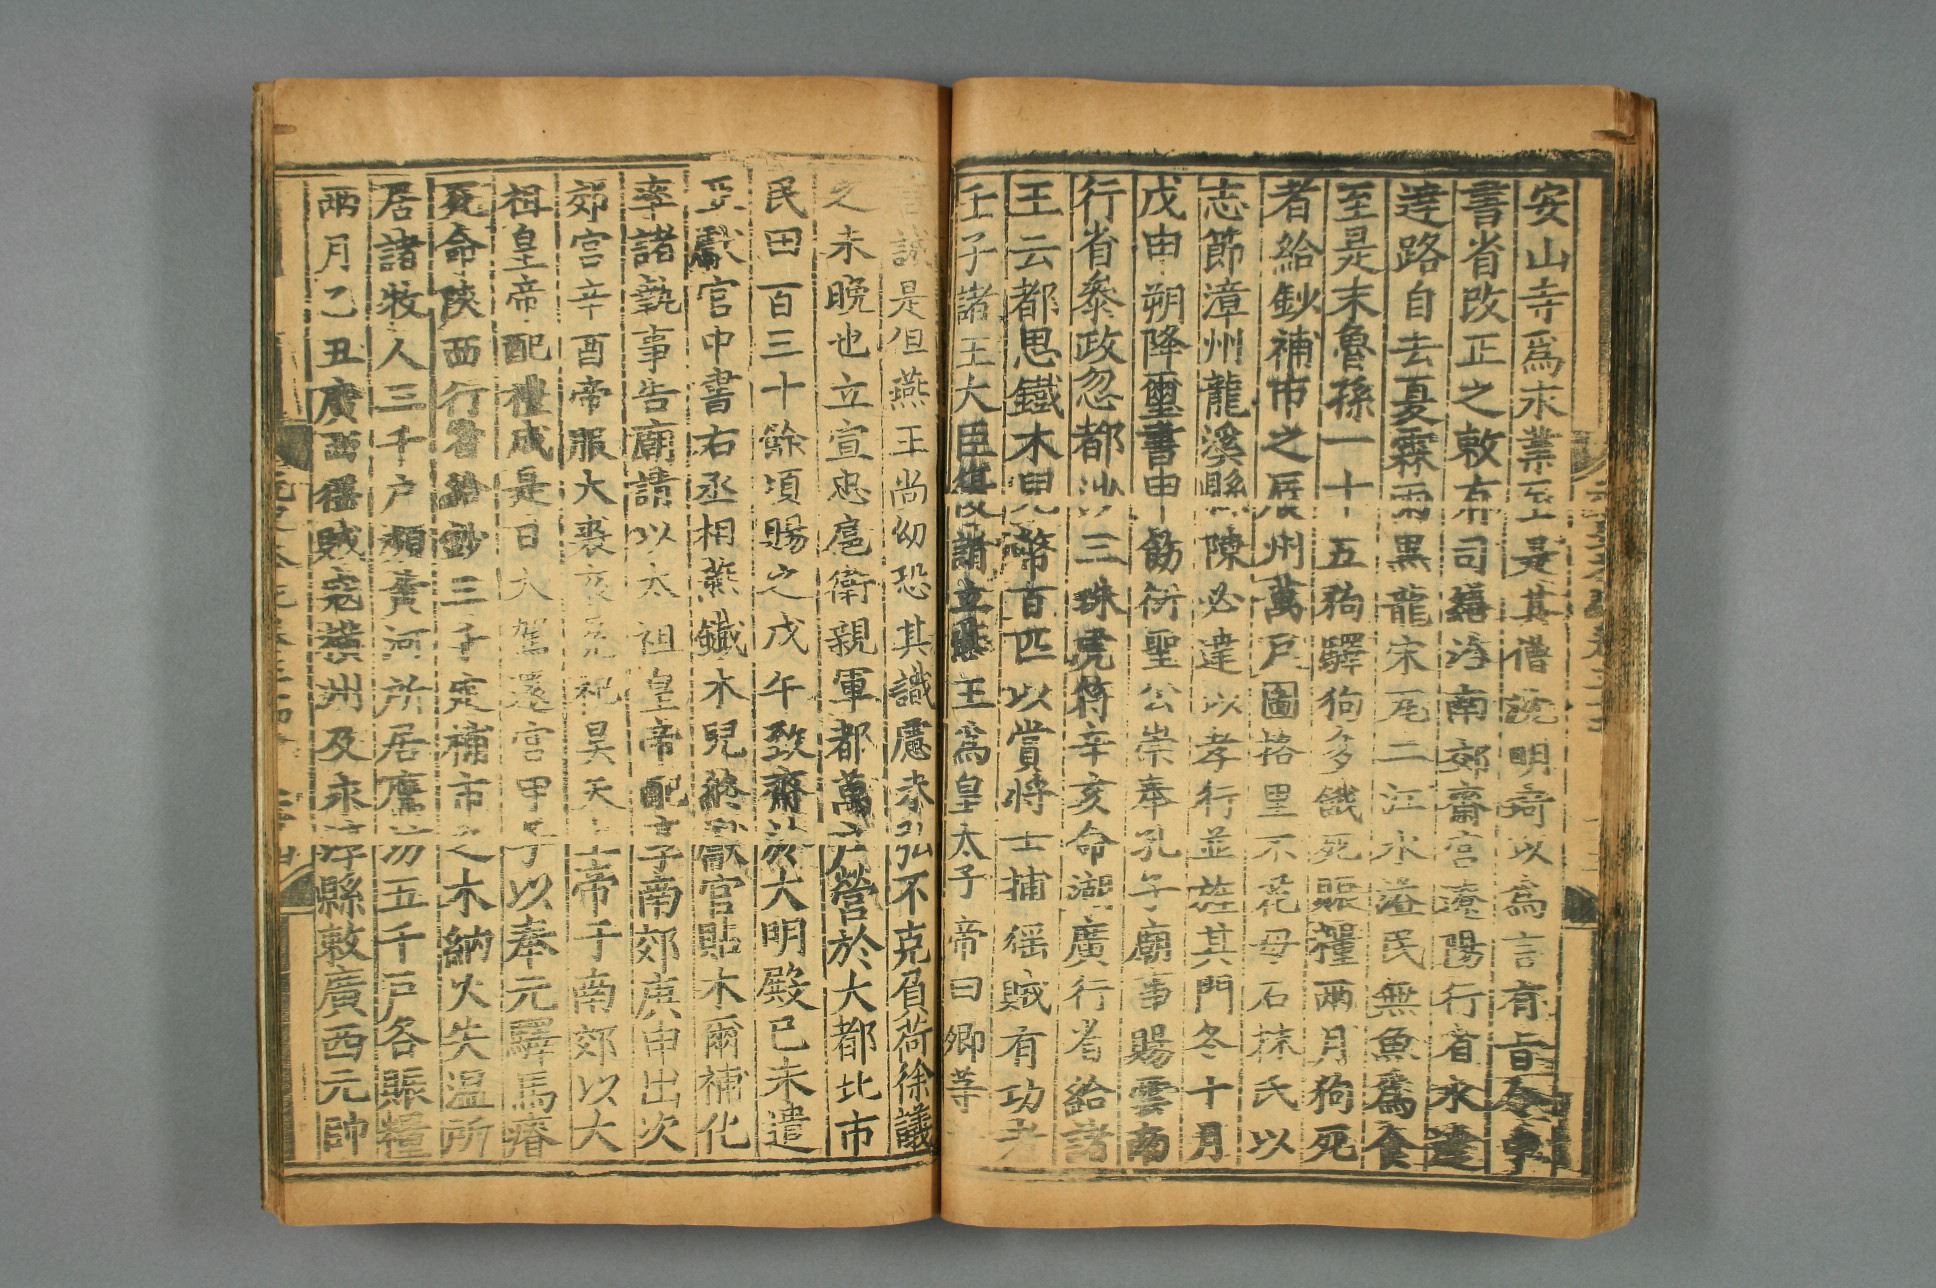 安山寺爲永業至是其僧説明竒以爲言有旨令
書省改正之敕有司繕治南郊齋宮遼陽行省水達
逹路自去夏霖雨黑龍宋瓦二江水溢民無魚爲食
至是末魯孫一十五狗驛狗多餓死賑糧兩月狗死
者給鈔補市之辰州萬戶圖格里不花母石抹氏以
志節漳州龍溪縣陳必達以孝行並旌其門冬十月
戊申朔降璽書申飭衍聖公崇奉孔子廟事賜雲南
行省參政忽都沙三珠虎符辛亥命湖廣行省給諸
王云都思鐵木兒幣百匹以賞將士捕猺賊有功者
壬子諸王大臣復請立燕王爲皇太子帝曰卿等
言誠是但燕王尚幼恐其識慮未弘不克負荷徐議
之未晚也立宣忠扈衛親軍都萬戶營於大都北市
民田百三十餘頃賜之戊午致齋於大明殿已未遣
亞獻官中書右丞相燕鐵木兒終獻官貼木爾補化
率諸執事告廟請以太祖皇帝配享南郊庚申出次
郊宮辛酉帝服大裘袞冕祀昊天上帝于南郊以大
祖皇帝配禮成是日大駕還宮甲子以奉元驛馬瘠
死命陝西行省給鈔三千定補市之木納火失溫所
居諸牧人三千戶瀕黃河所居鷹坊五千戶各賑糧
兩月乙丑廣西猺賊寇橫州及永淳縣敕廣西元帥